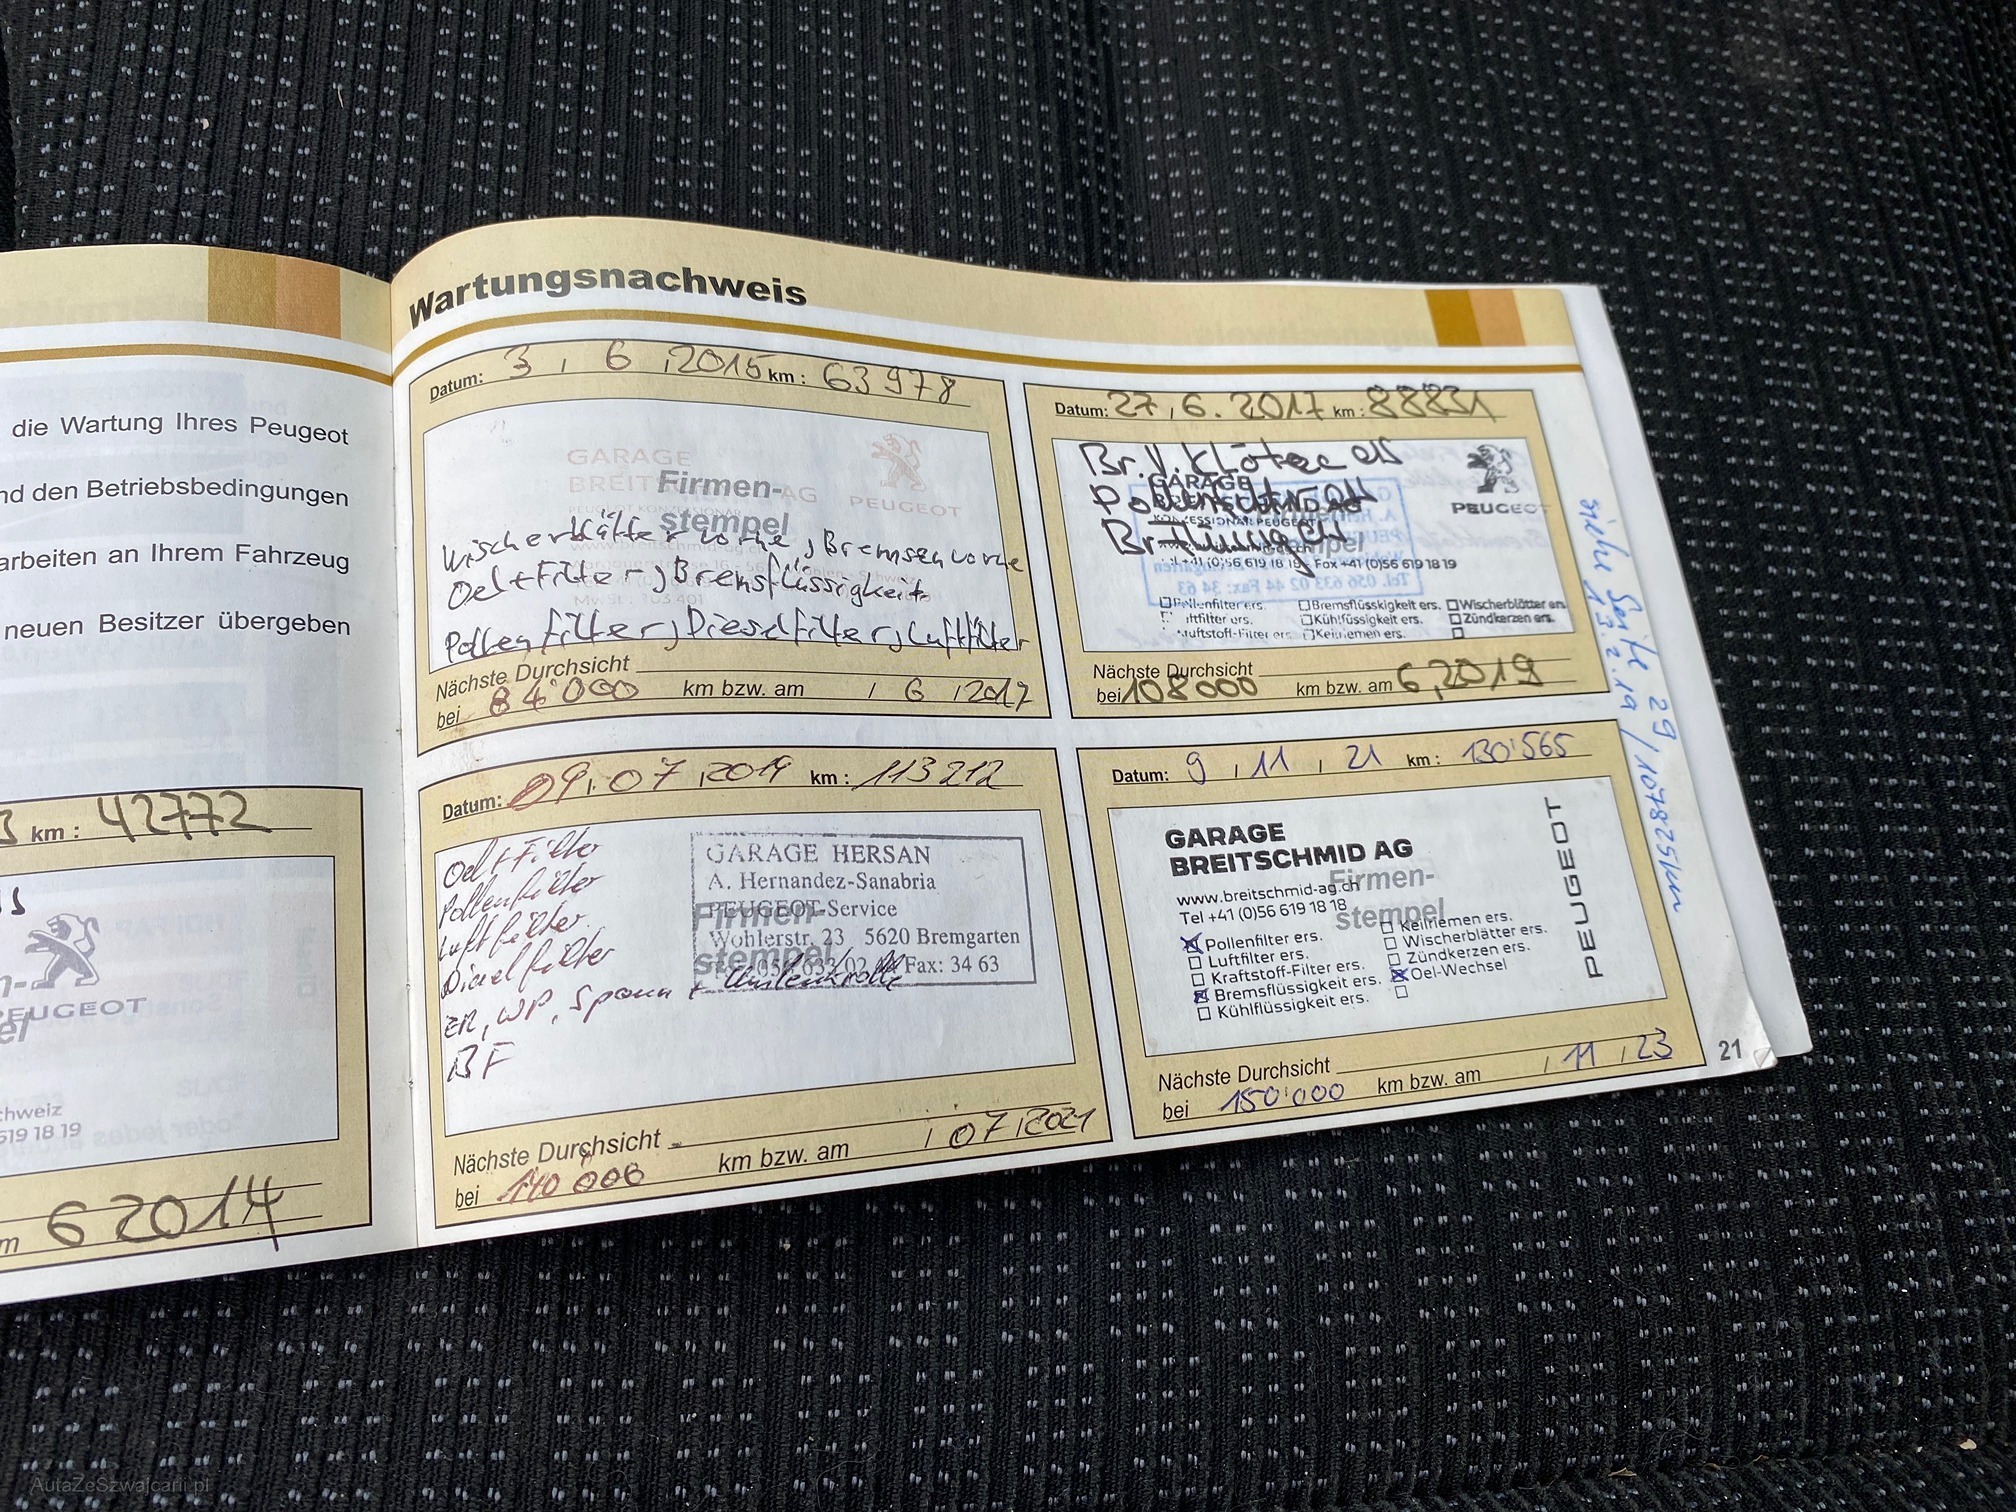 die Wartung Ihres Peugeot
nd den Betriebsbedingungen
arbeiten an Ihrem Fahrzeug
neuen Besitzer übergeben
3 km : 42772
PEUGEOT
chweiz
619 18 19
m 6 2014
Wartungsnachweis
Datum: 3 , 6 , 2015 km : 63978
GARAGE
BREITSCHMID AG
Firmen-
stempel
PEUGEOT
Wischerblätter vorne, Bremsen vorne
Oel+Filter, Bremsflüssigkeit
Pollenfilter, Dieselfilter, Luftfilter
Nächste Durchsicht
bei 84'000 km bzw. am / 6 / 2017
Datum: 27 , 6 . 2017 km : 88831
Br. V. Klötze ers
GARAGE
BREITSCHMID AG
KONZESSIONÄR PEUGEOT
PEUGEOT
+41 (0)56 619 18 19 Fax +41 (0)56 619 18 19
Pollenfilter ers. Bremsflüsskigkeit ers. Wischerblätter ers.
Luftfilter ers. Kühlflüssigkeit ers. Zündkerzen ers.
Kraftstoff-Filter ers. Keilriemen ers.
Nächste Durchsicht
bei 108000 km bzw. am 6,2019
siehe Seite 29 / 107825km
13.2.19
Datum: 09. 07 , 2019 km : 113212
Oel + Filter
Pollenfilter
Luftfilter
Dieselfilter
ZR, WP, Spann + Umlenkrolle
BF
GARAGE HERSAN
A. Hernandez-Sanabria
PEUGEOT-Service
Wohlerstr. 23 5620 Bremgarten
Fax: 34 63
Firmen-
stempel
Nächste Durchsicht
bei 140 000 km bzw. am / 07 / 2021
Datum: 9 , 11 , 21 km : 130'565
GARAGE
BREITSCHMID AG
www.breitschmid-ag.ch
Tel +41 (0)56 619 18 18
Firmen-
stempel
PEUGEOT
Pollenfilter ers. Keilriemen ers.
Luftfilter ers. Wischerblätter ers.
Kraftstoff-Filter ers. Zündkerzen ers.
Bremsflüssigkeit ers. Oel-Wechsel
Kühlflüssigkeit ers.
Nächste Durchsicht
bei 150'000 km bzw. am / 11 / 23
21
AutaZeSzwajcarii.pl